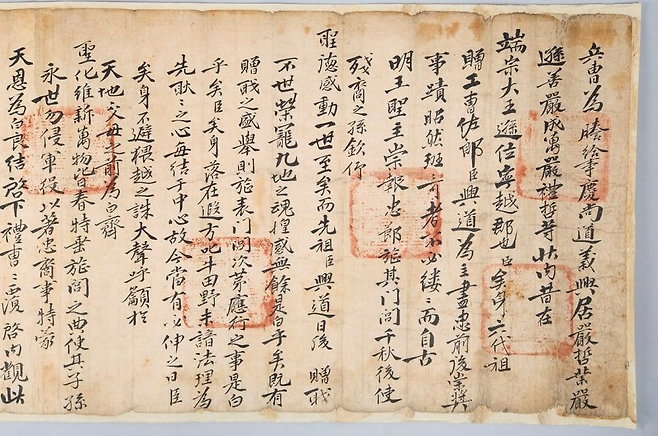 兵曹為謄給事慶尚道義興居嚴哲業嚴
遜善嚴成萬嚴禮哲等狀內昔在
端宗大王遜位寧越郡也臣矣身六代祖
贈工曹佐郎臣興道為主盡忠前後崇獎
事蹟昭然班〻可考不必縷〻而自古
明王聖主崇報忠節旌其門閭千秋後使
殘裔之孫欽仰
聖德感動一世至矣而先祖臣興道日後 贈職
不世榮寵九地之魂惶感無餘是白乎矣既有
贈職之盛舉則旌表門閭次第應行之事是白
乎矣臣矣身落在遐方牛田野未諳法理為
先耿〻之心每結于中心故今當有必伸之日臣
矣身不避猥越之誅大聲呼籲於
天地父母之前為白齊
聖化維新萬物皆春特垂旌閭之典使其子孫
永世勿侵軍役以著忠裔事特蒙
天恩為白良結啓下禮曹〻覆啓內觀此